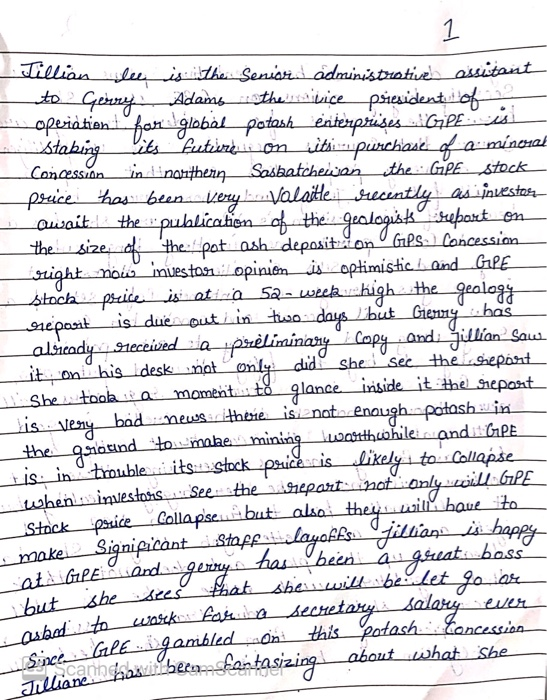 1
Jillian lee, is the Senior administrative assitant
to Gerry Adams the vice president of
operation for global potash enterprises GPE is
staking its future on its purchase of a mineral
Concession in northern Saskatchewan the GPE stock
price has been very Volaitle recently as investor
await the publication of the geologists report on
the size of the pot ash deposit on GPS Concession
right now investor opinion is optimistic and GPE
stock price is at a 52-week high the geology
report is due out in two days but Gerry has
already received a preliminary Copy and Jillian Saw
it on his desk not only did she see the report
She took a moment to glance inside it the report
is very bad news there is not enough potash in
the ground to make mining worthwhile and GPE
is in trouble its stock price is likely to Collapse
when investors see the report not only will GPE
Stock price Collapse but also they will have to
make Significant Staff layoffs jillian is happy
at GPE and gerry has been a great boss
but she sees that she will be let go or
asked to work for a secretary salary ever
Since GPE gambled on this potash Concession
Jilliane has been fantasizing about what she
Scanned with CamScanner